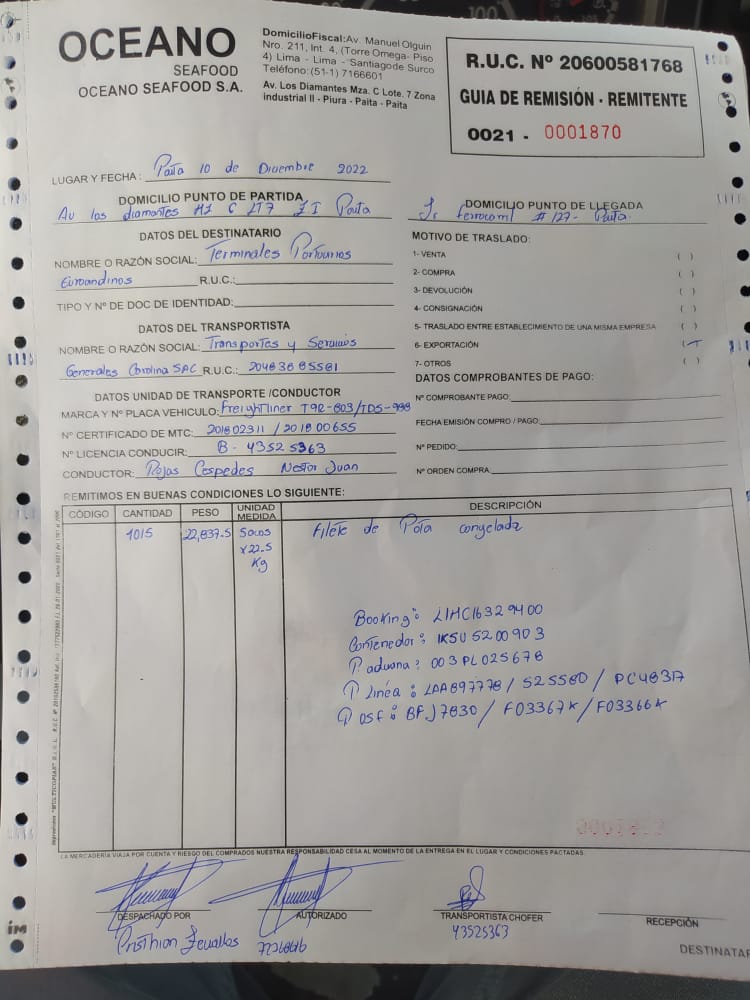 OCEANO
SEAFOOD
OCEANO SEAFOOD S.A.
DomicilioFiscal:Av. Manuel Olguin
Nro. 211, Int. 4, (Torre Omega- Piso
4) Lima - Lima - Santiago de Surco
Teléfono:(51-1) 7166601
Av. Los Diamantes Mza. C Lote. 7 Zona
industrial II - Piura - Paita - Paita
R.U.C. Nº 20600581768
GUIA DE REMISIÓN - REMITENTE
0021 - 0001870
LUGAR Y FECHA: Paita 10 de Diciembre 2022
DOMICILIO PUNTO DE PARTIDA
Av los diamantes Mz C LT7 Z I Paita
DOMICILIO PUNTO DE LLEGADA
Jr ferrocarril # 127- Paita
DATOS DEL DESTINATARIO
NOMBRE O RAZÓN SOCIAL: Terminales Portuarios
Euroandinos R.U.C.:
TIPO Y Nº DE DOC DE IDENTIDAD:
MOTIVO DE TRASLADO:
1- VENTA ( )
2- COMPRA ( )
3- DEVOLUCIÓN ( )
4- CONSIGNACIÓN ( )
5- TRASLADO ENTRE ESTABLECIMIENTO DE UNA MISMA EMPRESA ( )
6- EXPORTACIÓN ( )
7- OTROS ( )
DATOS DEL TRANSPORTISTA
NOMBRE O RAZÓN SOCIAL: Transportes y Servicios
Generales Carolina SAC R.U.C.: 20483885581
DATOS UNIDAD DE TRANSPORTE /CONDUCTOR
MARCA Y Nº PLACA VEHICULO: Freightliner T9R-803/TDS-988
Nº CERTIFICADO DE MTC: 201802311 / 201800655
Nº LICENCIA CONDUCIR: B - 43525363
CONDUCTOR: Rojas Cespedes Nestor Juan
DATOS COMPROBANTES DE PAGO:
Nº COMPROBANTE PAGO:
FECHA EMISIÓN COMPRO / PAGO:
Nº PEDIDO:
Nº ORDEN COMPRA:
REMITIMOS EN BUENAS CONDICIONES LO SIGUIENTE:
CÓDIGO CANTIDAD PESO UNIDAD MEDIDA DESCRIPCIÓN
1015 22,837.5 Sacos Filete de Pota congelada
x22.5
Kg
Booking: LIMC16329400
Contenedor: IKSU 5200903
P. aduana: 003PL025678
P linéa: LAA897778 / 525580 / PC48317
P OSF: BFJ7830 / F03367K / F03366K
LA MERCADERÍA VIAJA POR CUENTA Y RIESGO DEL COMPRADOS NUESTRA RESPONSABILIDAD CESA AL MOMENTO DE LA ENTREGA EN EL LUGAR Y CONDICIONES PACTADAS.
DESPACHADO POR
AUTORIZADO
TRANSPORTISTA CHOFER
RECEPCIÓN
Cristhian Zevallos
43525363
DESTINATAR